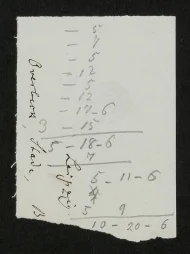 - 5
- 7
- 5
- 12
- 5
- 12
- 17-6
3 - 15
5 - 18-6
7
5 - 11-6
5 9
10-20-6
Overbeck, Stade, B
Leipzig